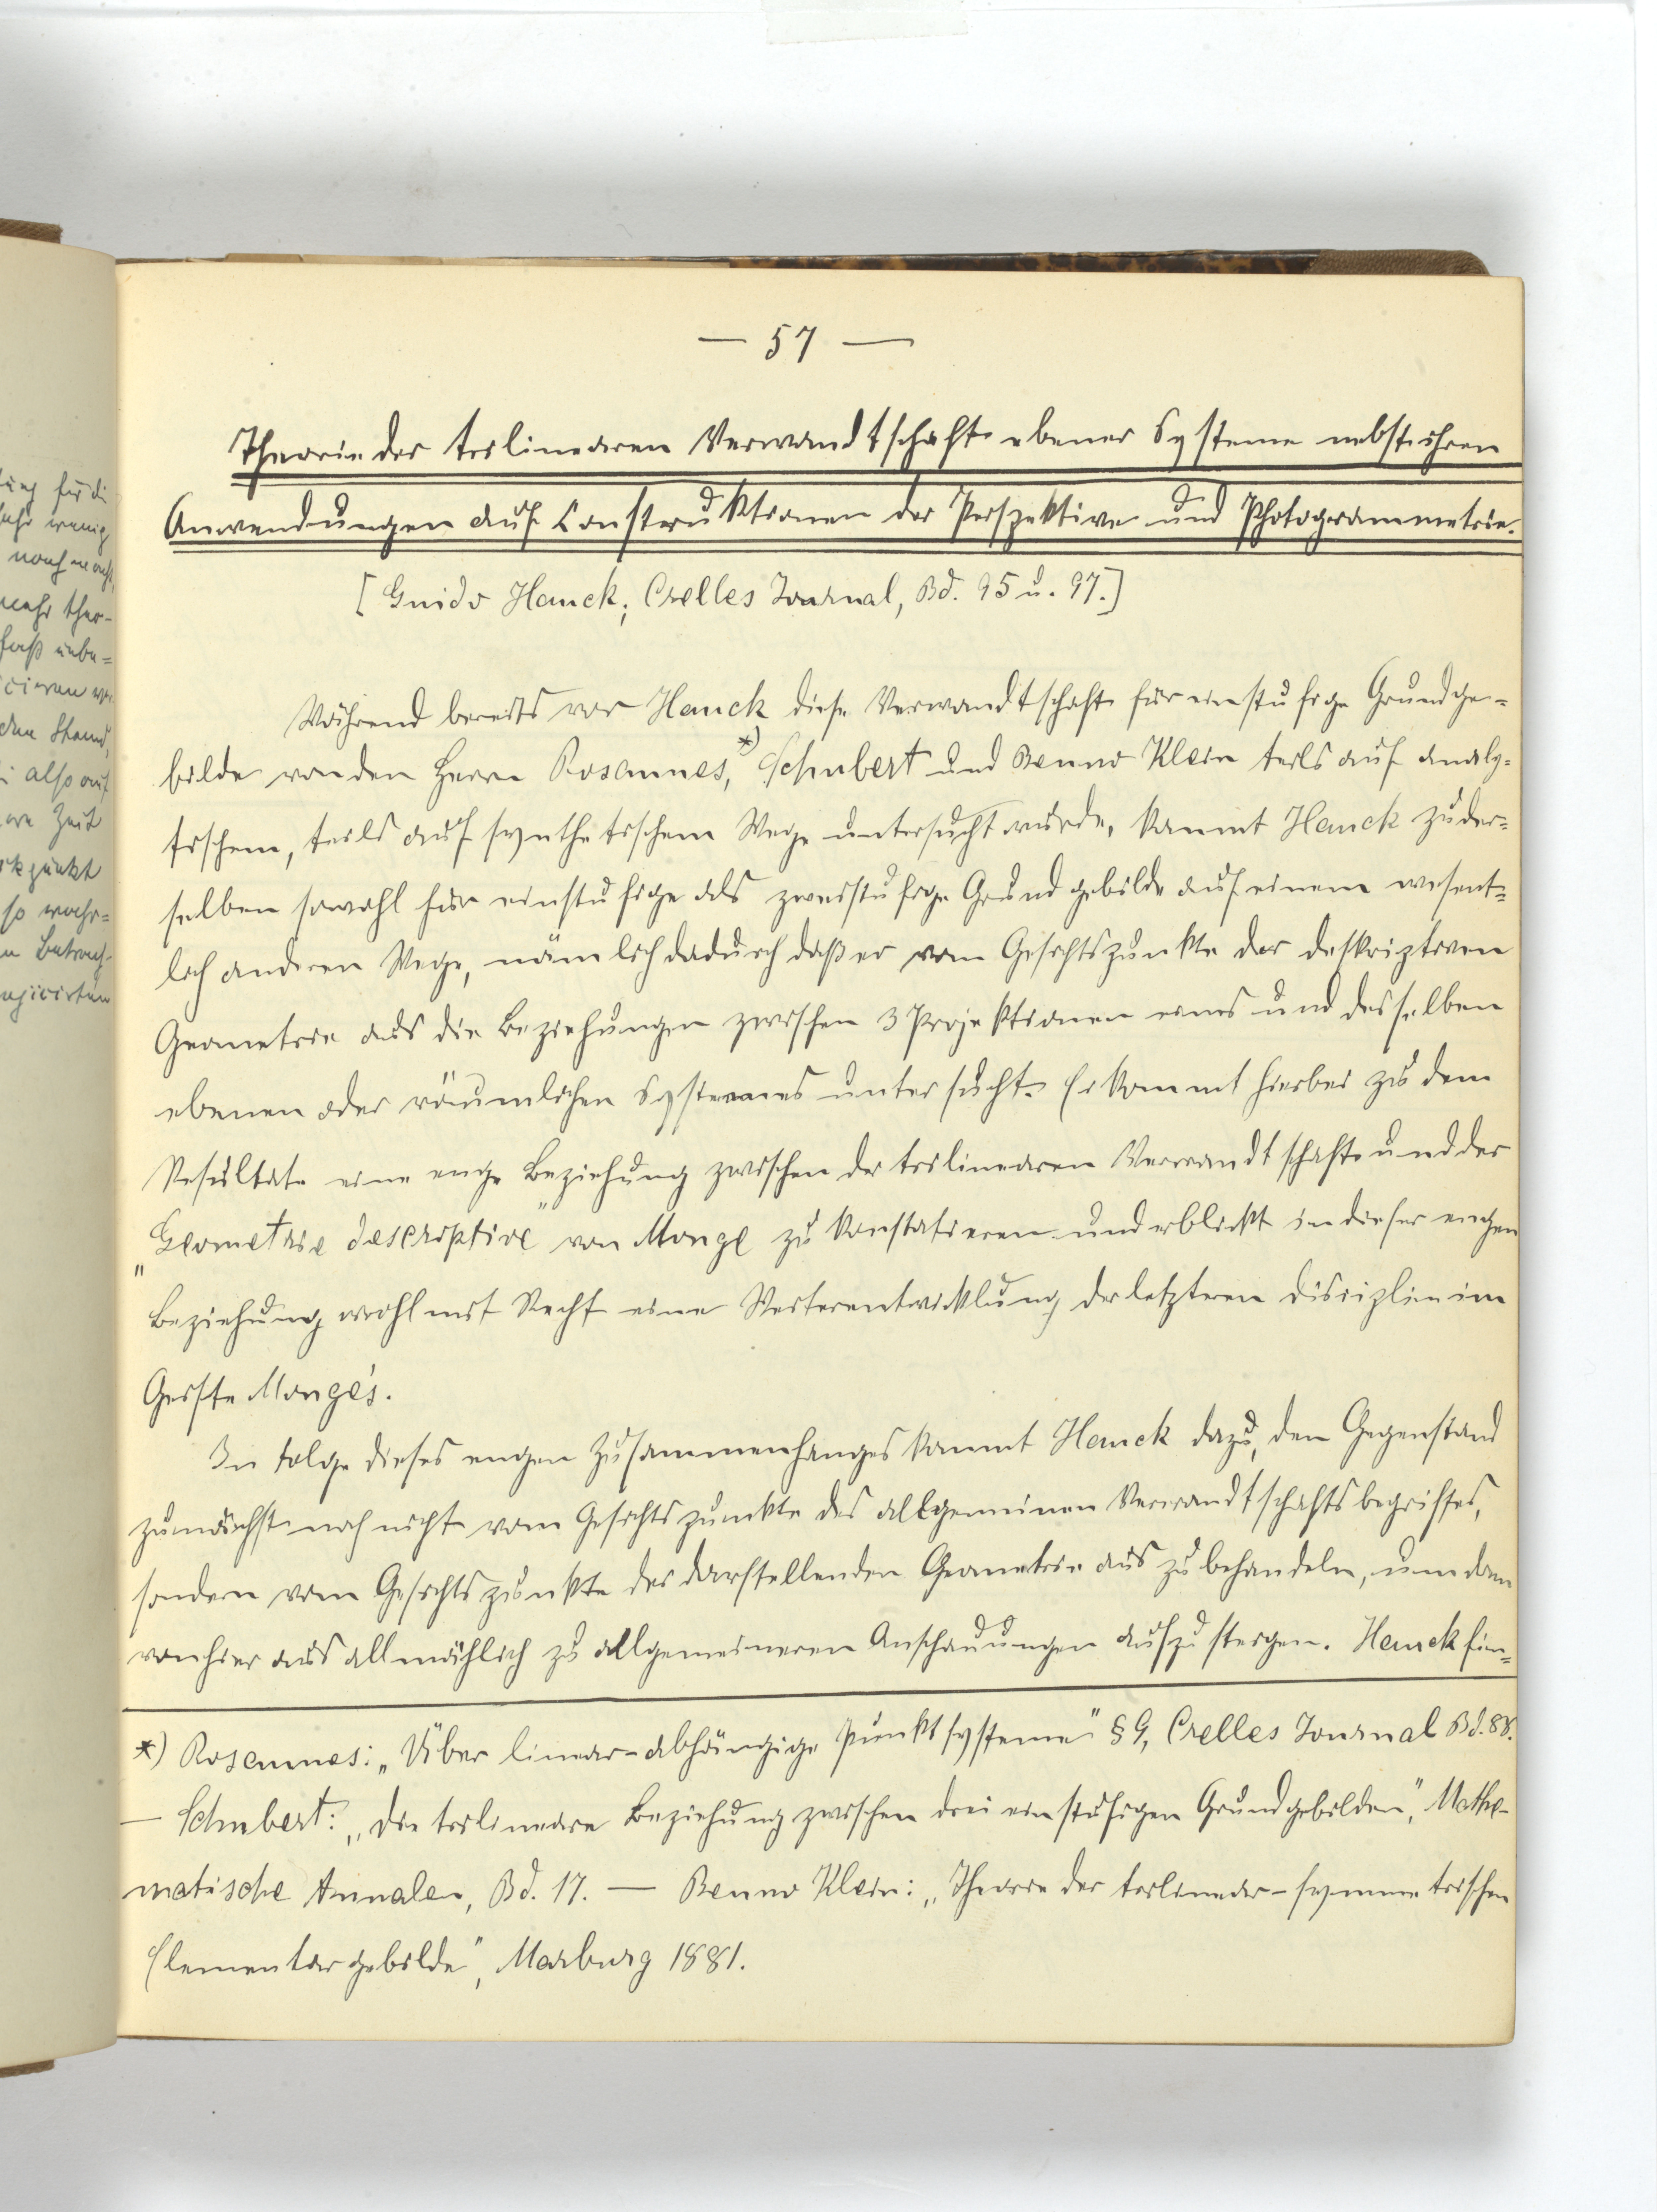 — 57 —
Theorie der trilinearen Verwandtschaft ebener Systeme nebst ihren
Anwendungen auf Construktionen der Perspektive und Photogrammetrie.
[Guido Hauck; Crelles Journal, Bd. 95 u. 97.]
Während bereits vor Hauck diese Verwandtschaft für einstufige Grundge-
bilde von den Herrn Rosannes,*) Schubert und Benno Klein teils auf analy-
tischem, teils auf synthetischem Wege untersucht wurde, kommt Hauck zu der-
selben sowohl für einstufige als zweistufige Grundgebilde auf einem wesent-
lich anderen Wege, nämlich dadurch daß er vom Gesichtspunkte der deskriptiven
Geometrie aus die Beziehungen zwischen 3 Projektionen eines und desselben
ebenen oder räumlichen Systemes untersucht. Er kommt hierbei zu dem
Resultate eine enge Beziehung zwischen der trilinearen Verwandtschaft und der
„Geometrie descriptive" von Monge zu konstatieren und erblickt in dieser engen
Beziehung wohl mit Recht eine Weiterentwicklung der letzteren Disciplin im
Geiste Monge's.
In Folge dieses engen Zusammenhanges kommt Hauck dazu, den Gegenstand
zunächst noch nicht vom Gesichtspunkte des allgemeinen Verwandtschaftsbegriffes,
sondern vom Gesichtspunkte der darstellenden Geometrie aus zu behandeln, um dann
von hier aus allmählich zu allgemeineren Anschauungen aufzusteigen. Hauck fin-
*) Rosannes: „Über linear-abhängige Punktsysteme" § 9, Crelles Journal Bd. 88.
— Schubert: „Die trilineare Beziehung zwischen drei einstufigen Grundgebilden", Mathe-
matische Annalen, Bd. 17. — Benno Klein: „Theorie der trilinear-symmetrischen
Elementargebilde", Marburg 1881.